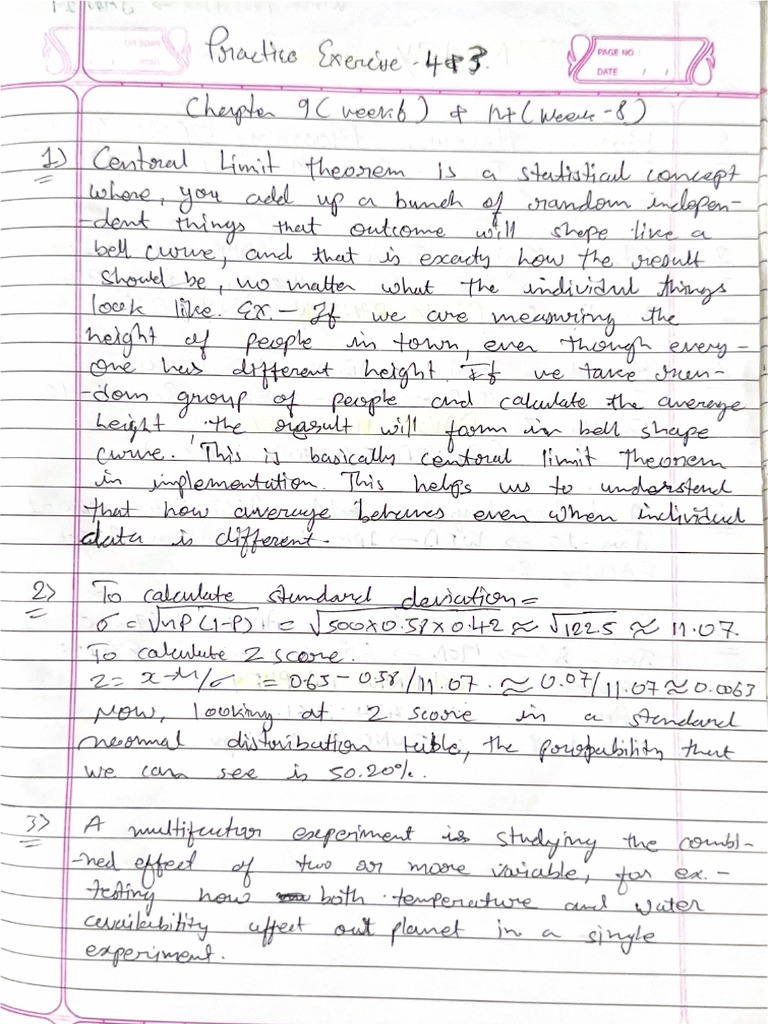 Practice Exercise - 4 & 3.
PAGE NO.
DATE / /
Chapter 9 (week 6) & 14 (week - 8)
1) Central Limit theorem is a statistical concept
where, you add up a bunch of random indepen-
-dent things that outcome will shape like a
bell curve, and that is exacty how the result
should be, no matter what the individul things
look like. Ex. - If we are measuring the
height of people in town, even though every-
one has different height. If we take ran-
-dom group of people and calculate the average
height, the result will form in bell shape
curve. This is basically central limit theorem
in implementation. This helps us to understand
that how average behaves even when individual
data is different.
2) To calculate standard deviation =
σ = √np(1-P) = √500×0.58×0.42 ≈ √122.5 ≈ 11.07.
To calculate Z score.
Z = x-M/σ = 0.65 - 0.58/11.07. ≈ 0.07/11.07 ≈ 0.0063
Now, looking at Z score in a standard
normal distribution table, the probability that
we can see is 50.20%.
3) A multifactor experiment is studying the combi-
-ned effect of two or more variable, for ex. -
testing how both temperature and water
availability affect out planet in a single
experiment.